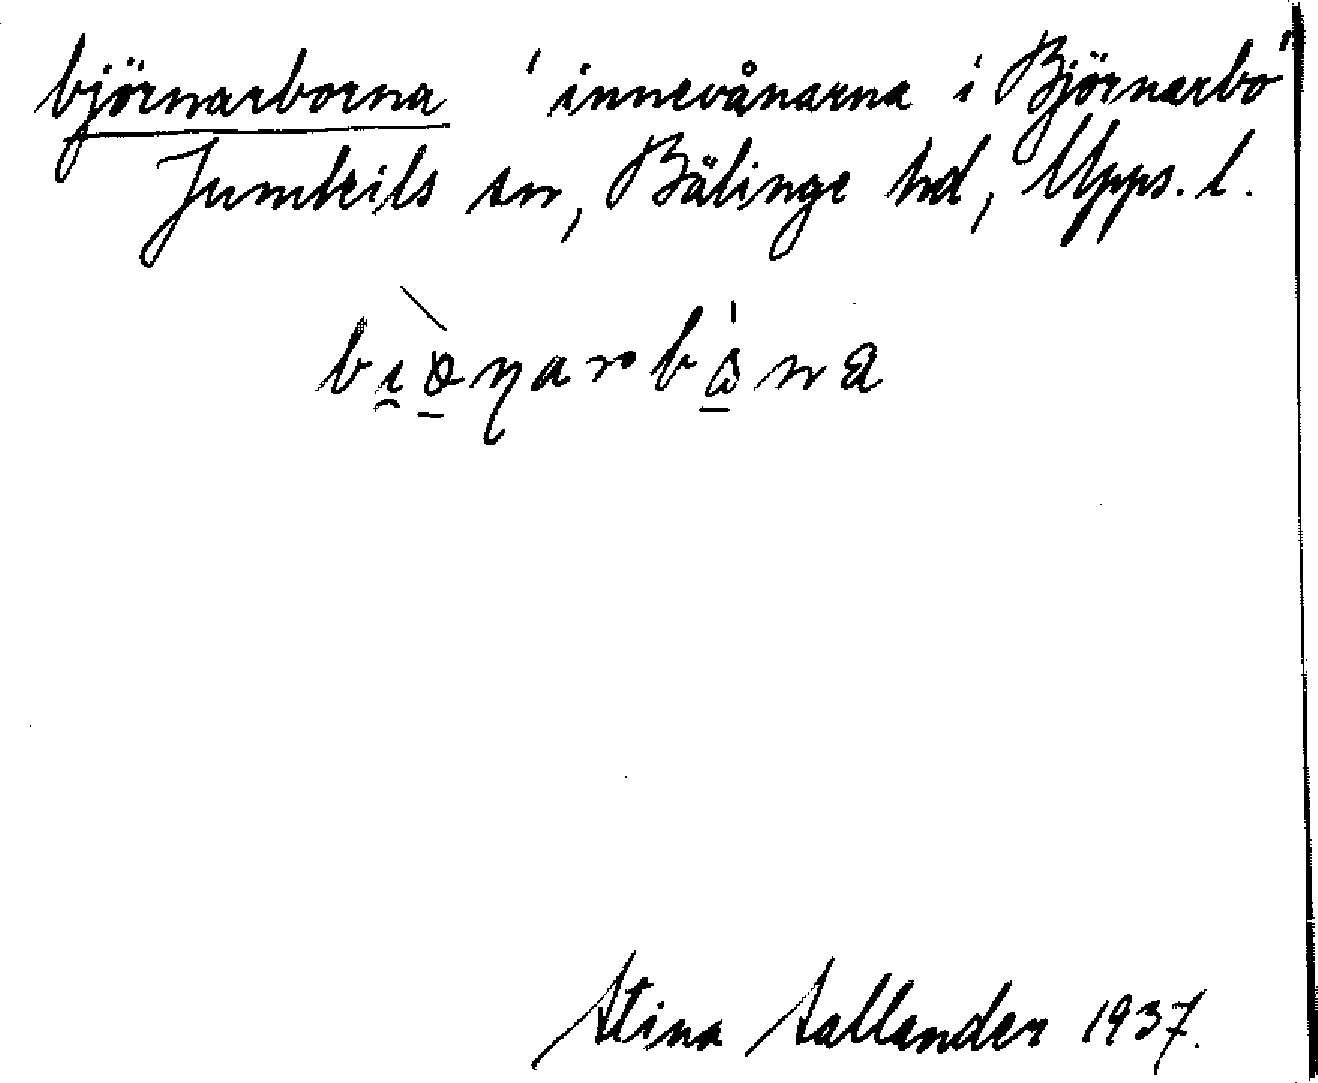 björnarborna 'innevånarna i Björnarbo'
Jumkils sn, Bälinge hd, Uppl.
Stina Sallander 1937.